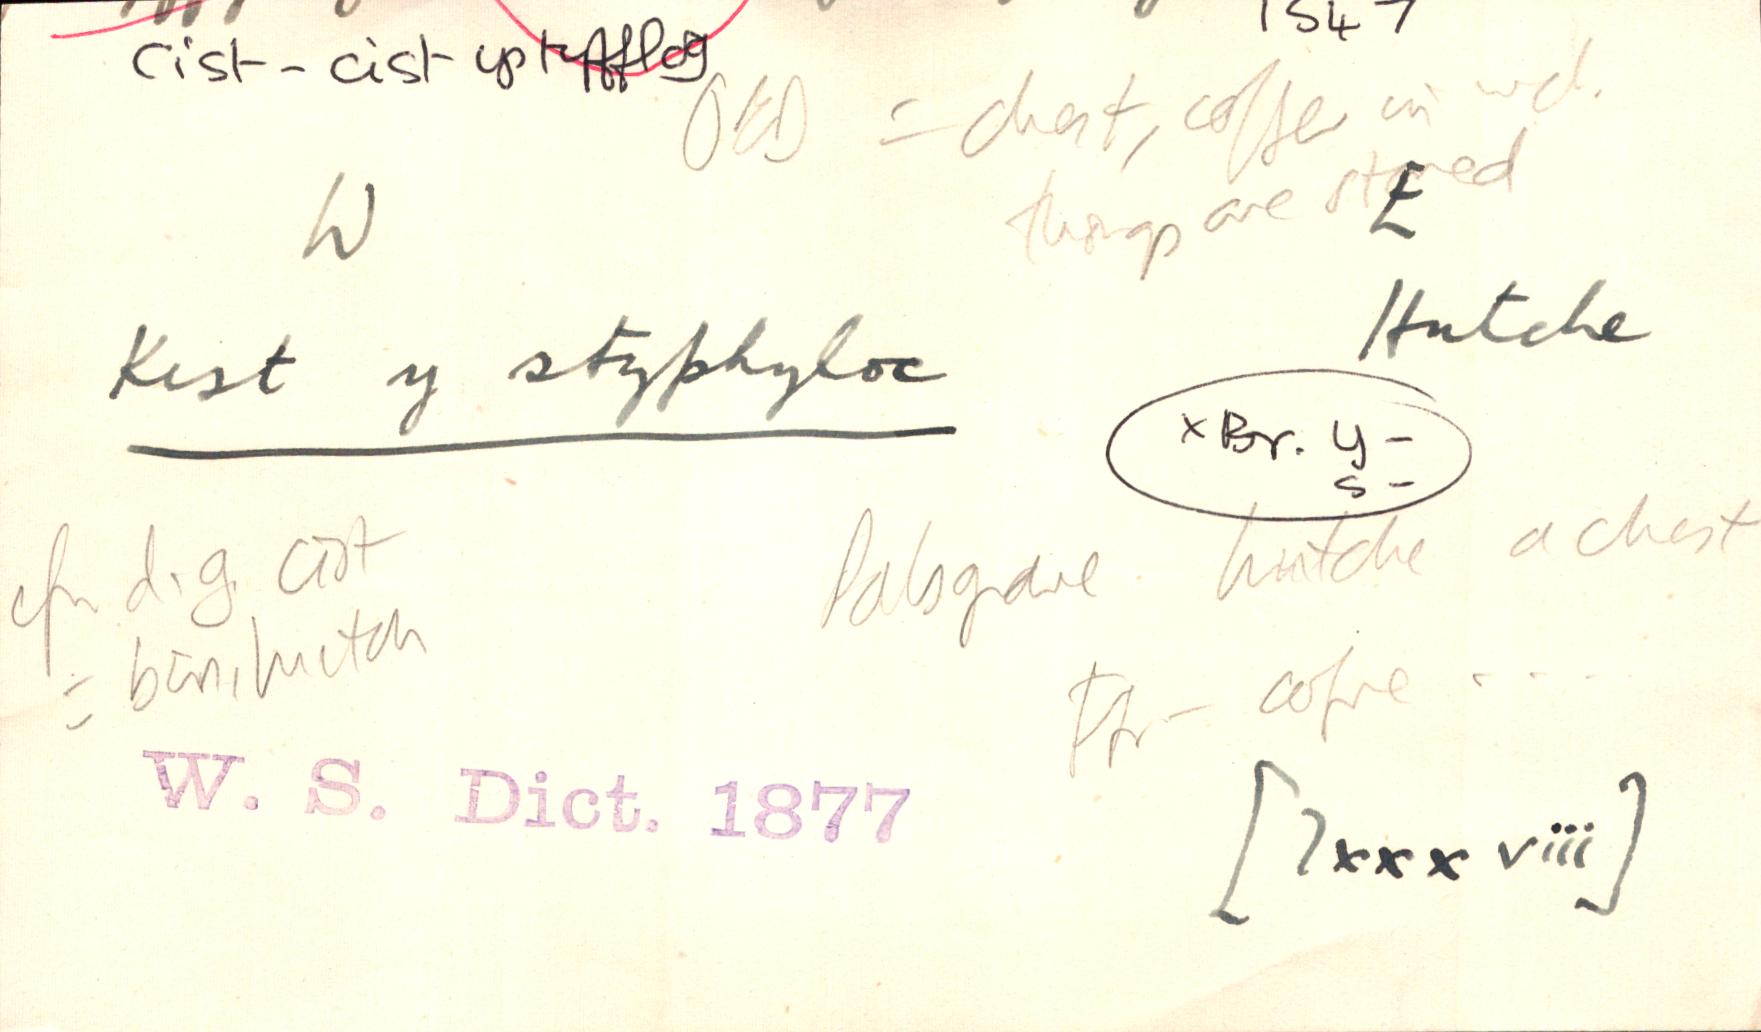 1547
cist - cist ystyffylog
OED = chest, coffer in wch.
things are stored
W
E
Kist y styphyloc
Hutche
x Br. y -
s -
cfn d.g. cist
= bin, hutch
Palsgrave hutche a chest
Ffr - cofre . . . .
W. S. Dict. 1877
[7 xxx viii]